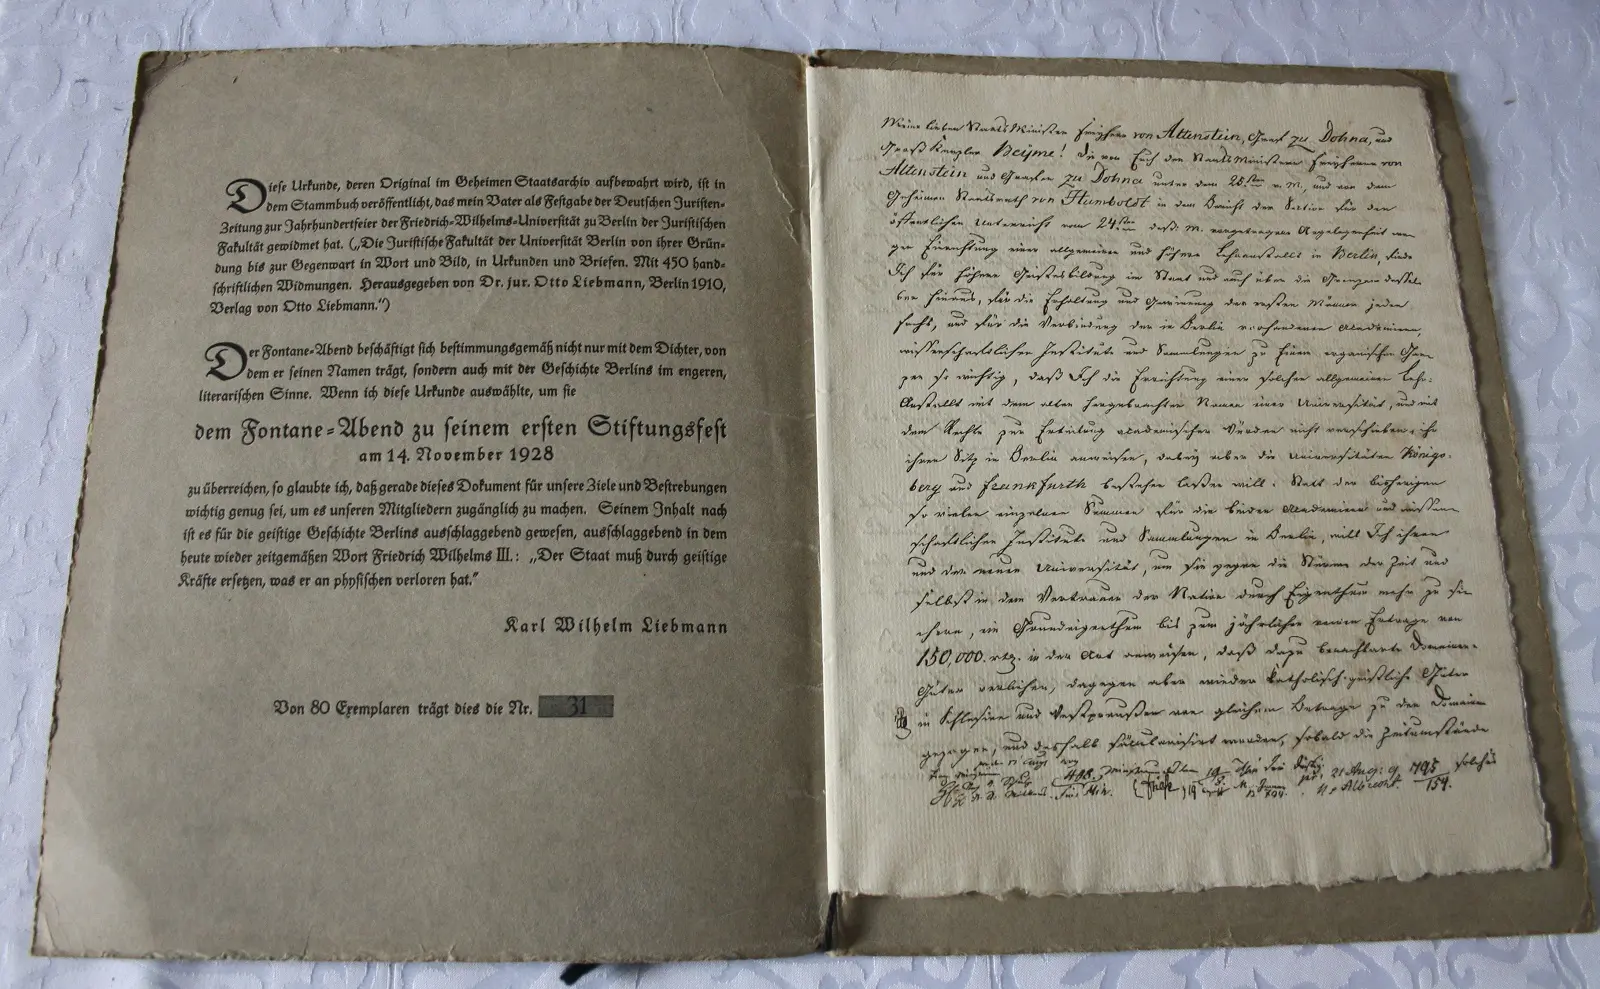 Diese Urkunde, deren Original im Geheimen Staatsarchiv aufbewahrt wird, ist in
dem Stammbuch veröffentlicht, das mein Vater als Festgabe der Deutschen Juristen-
Zeitung zur Jahrhundertfeier der Friedrich-Wilhelms-Universität zu Berlin der Juristischen
Fakultät gewidmet hat. („Die Juristische Fakultät der Universität Berlin von ihrer Grün-
dung bis zur Gegenwart in Wort und Bild, in Urkunden und Briefen. Mit 450 hand-
schriftlichen Widmungen. Herausgegeben von Dr. jur. Otto Liebmann, Berlin 1910,
Verlag von Otto Liebmann.“)
Der Fontane-Abend beschäftigt sich bestimmungsgemäß nicht nur mit dem Dichter, von
dem er seinen Namen trägt, sondern auch mit der Geschichte Berlins im engeren,
literarischen Sinne. Wenn ich diese Urkunde auswählte, um sie
dem Fontane-Abend zu seinem ersten Stiftungsfest
am 14. November 1928
zu überreichen, so glaubte ich, daß gerade dieses Dokument für unsere Ziele und Bestrebungen
wichtig genug sei, um es unseren Mitgliedern zugänglich zu machen. Seinem Inhalt nach
ist es für die geistige Geschichte Berlins ausschlaggebend gewesen, ausschlaggebend in dem
heute wieder zeitgemäßen Wort Friedrich Wilhelms III.: „Der Staat muß durch geistige
Kräfte ersetzen, was er an physischen verloren hat.“
Karl Wilhelm Liebmann
Von 80 Exemplaren trägt dies die Nr. 31
Meine lieben Staats Minister Freyherr von Altenstein, Graf zu Dohna, und
Groß Kanzler Beyme! Die von Euch den Staats Ministern Freyherrn von
Altenstein und Grafen zu Dohna unter dem 25.sten v. M., und von dem
Geheimen Staatsrath von Humboldt in dem Bericht der Section für den
öffentlichen Unterricht vom 24sten dess. M. vorgetragene Angelegenheit we-
gen Einrichtung einer allgemeinen und höhern Lehranstalt in Berlin, finde
Ich für höhere Geistesbildung im Staat und auch über die Grenzen dessel-
ben hinaus, für die Erhaltung und Gewinnung der ersten Männer jeden
Fachs, und für die Verbindung der in Berlin vorhandenen Academieen,
wissenschaftlichen Institute und Sammlungen zu einem organischen Gan-
zen so wichtig, daß Ich die Errichtung einer solchen allgemeinen Lehr-
Anstalt mit dem alten hergebrachten Namen einer Universität, und mit
dem Rechte zur Ertheilung academischer Würden nicht verschieben, ihr
ihren Sitz in Berlin anweisen, dabey aber die Universitäten Königs-
berg und Frankfurth bestehen lassen will. Statt der bisherigen
so vielen einzelnen Summen für die beiden Academieen und wissen-
schaftlichen Institute und Sammlungen in Berlin, will Ich ihnen
und der neuen Universität, um sie gegen die Stürme der Zeit und
selbst in dem Vertrauen der Nation durch Eigenthum mehr zu si-
chern, ein Grundeigenthum bis zum jährlichen reinen Ertrage von
150,000. rtlr. in der Art anweisen, daß dazu benachbarte Domainen-
Güter verliehen, dagegen aber wieder katholisch-geistliche Güter
in Schlesien und Westpreußen von gleichem Betrage zu den Domainen
gezogen, und deshalb säcularisirt werden, sobald die Zeitumstände
solches